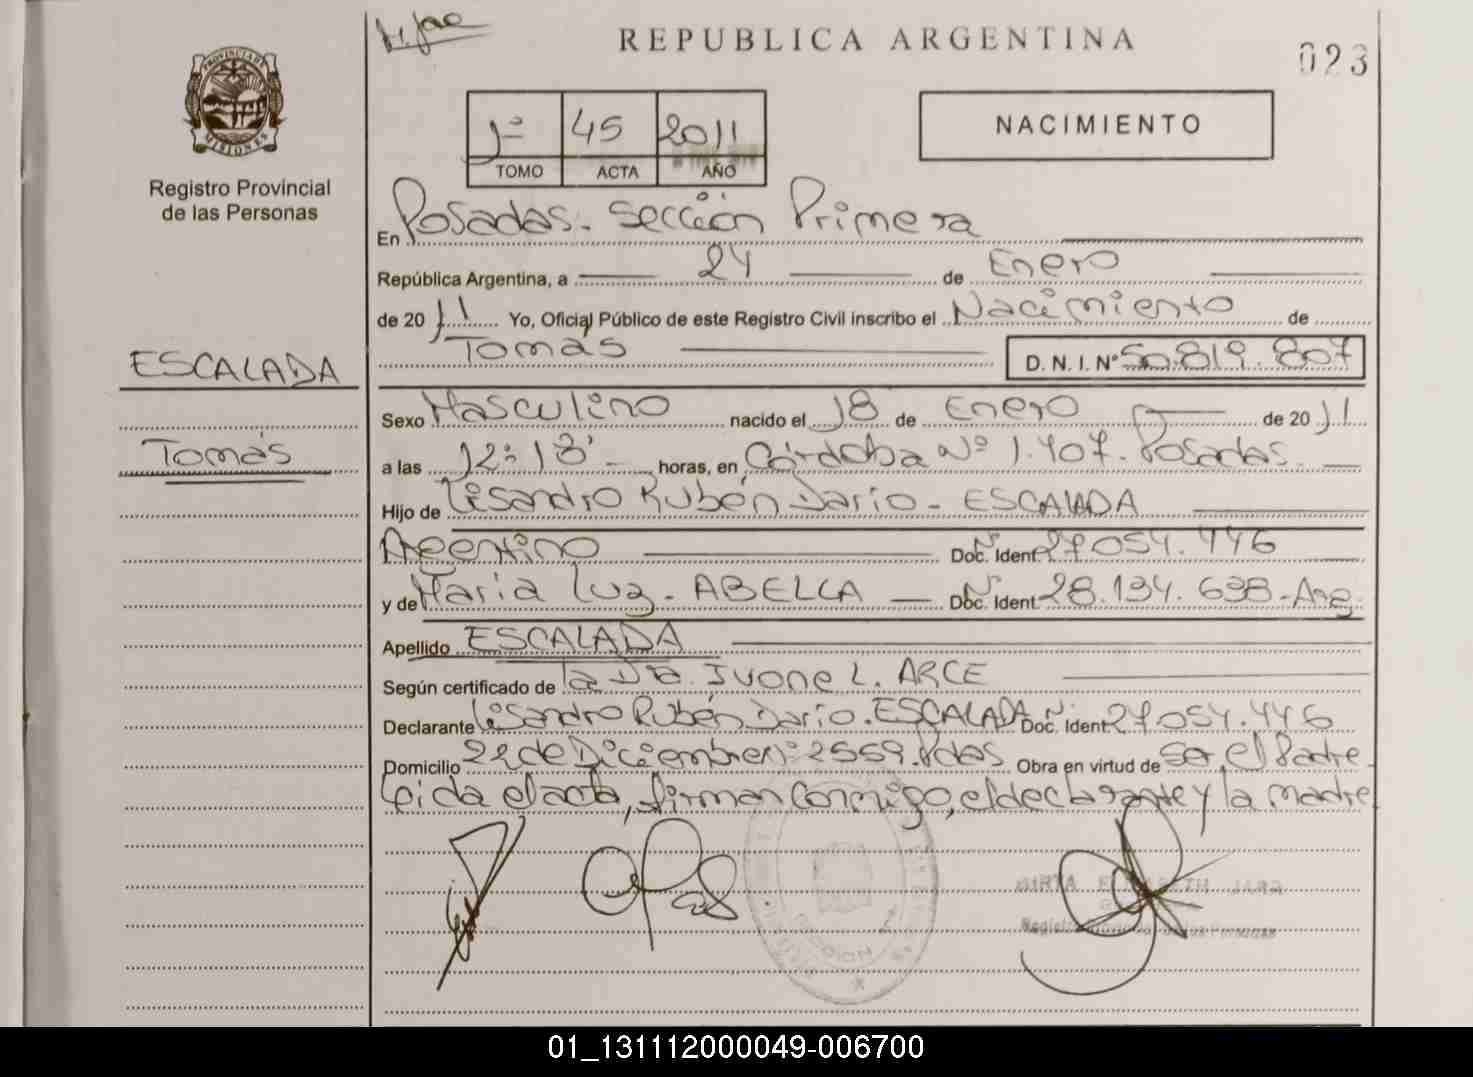 REPUBLICA ARGENTINA
023
PROVINCIA DE MISIONES
Registro Provincial
de las Personas
1º 45 2011
TOMO ACTA AÑO
NACIMIENTO
En Posadas. Sección Primera
República Argentina, a 24 de Enero
de 2011 Yo, Oficial Público de este Registro Civil inscribo el Nacimiento de
Tomás D. N. I. Nº 50.819.807
ESCALADA
Tomás
Sexo Masculino nacido el 18 de Enero de 2011
a las 12:18' horas, en Córdoba Nº 1.407. Posadas.
Hijo de Lisandro Rubén Darío - ESCALADA
Argentino Doc. Nº Ident 27.054.446
y de María Luz. ABELLA Doc. Nº Ident 28.134.638-Arg.
Apellido ESCALADA
Según certificado de la Dra. Ivone L. ARCE
Declarante Lisandro Rubén Darío. ESCALADA Doc. Nº Ident 27.054.446
Domicilio 22 de Diciembre Nº 2559. Pdas Obra en virtud de ser el Padre.
Leida el acta, firman conmigo, el declarante y la madre
01_131112000049-006700